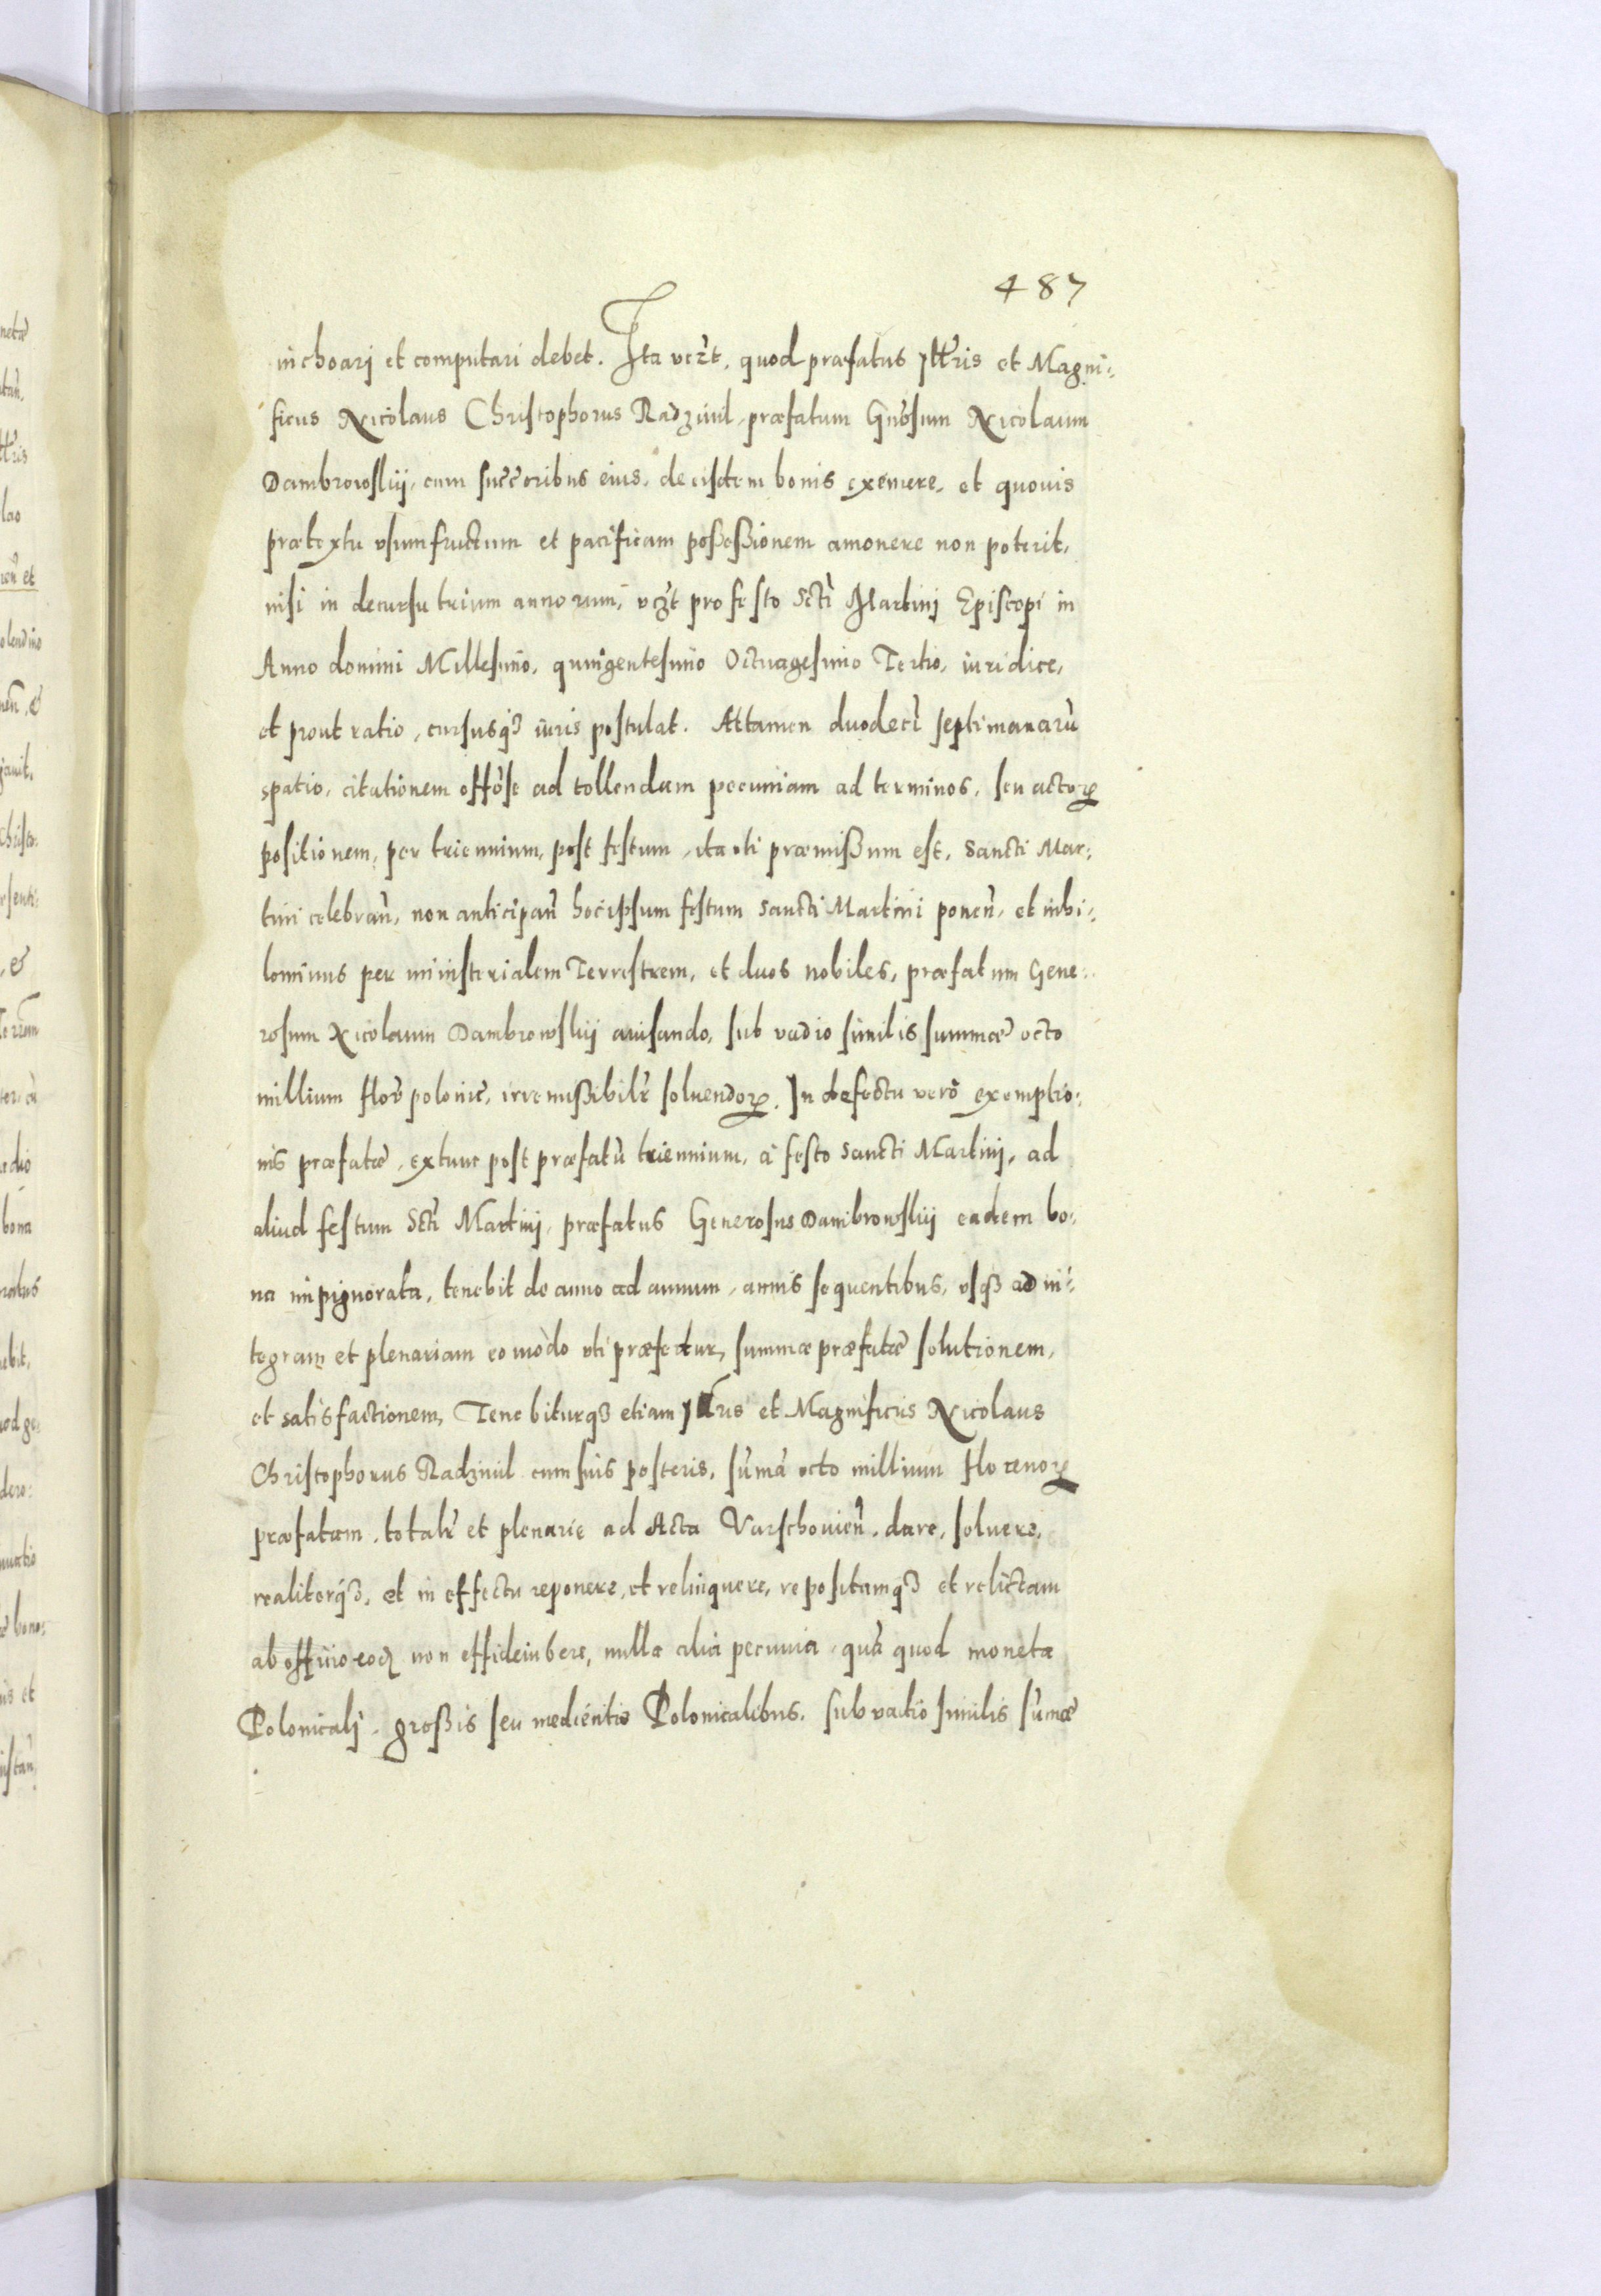 487
inchoarj et computari debet. Ita vczt, quod præfatus Jllris et Magni:
ficus Nicolaus Christophorus Radziuil, præfatum Gnosum Nicolaum
Dambrowskij, cum succoribus eius, de eisdem bonis eximere, et quouis
prætextu vsumfructum et pacificam possessionem amouere non poterit,
nisi in decursu trium annorum, vczt pro festo Scti Martinj Episcopi in
Anno domini Millesimo, quingentesimo Octuagesimo Tertio, iuridice,
et prout ratio, cursusq3 iuris postulat. Attamen duodeci septimanarū
spatio, citationem offose ad tollendam pecuniam ad terminos, seu actorꝝ
positionem, per triennium, post festum, ita vti præmissum est, Sancti Mar:
tini celebrañ, non anticipañ hocipsum festum Sancti Martini ponen̄, et nihi:
lominus per ministerialem Terrestrem, et duos nobiles, præfatum Gene:
rosum Nicolaum Dambrowskij auisando, sub vadio similis summæ octo
millium flor̄ polonic̄, irremissibilr̄ soluendorꝝ. In defectu verò exemptio:
nis præfatæ, extunc post præfatū triennium, à festo Sancti Martinj, ad
aliud festum Scti Martinj, præfatus Generosus Dambrowskij eadem bo:
na impignorata, tenebit de anno ad annum, annis sequentibus, vsq3 ad in:
tegram et plenariam eo modo vti præfertur, summæ præfatæ solutionem,
et satisfactionem, Tenebiturq3 etiam Jllrus et Magnificus Nicolaus
Christophorus Radziuil cum suis posteris, sumā octo millium florenorꝝ
præfatam, totalr̄ et plenarie ad Acta Varschouien̄, dare, soluere,
realiterq3, et in effectu reponere, et relinquere, repositamq3 et relictam
ab officio non nulla alia pecunia, quā quod moneta
Polonicalj, grossis seu Polonicalibus, sub vadio similis sumæ